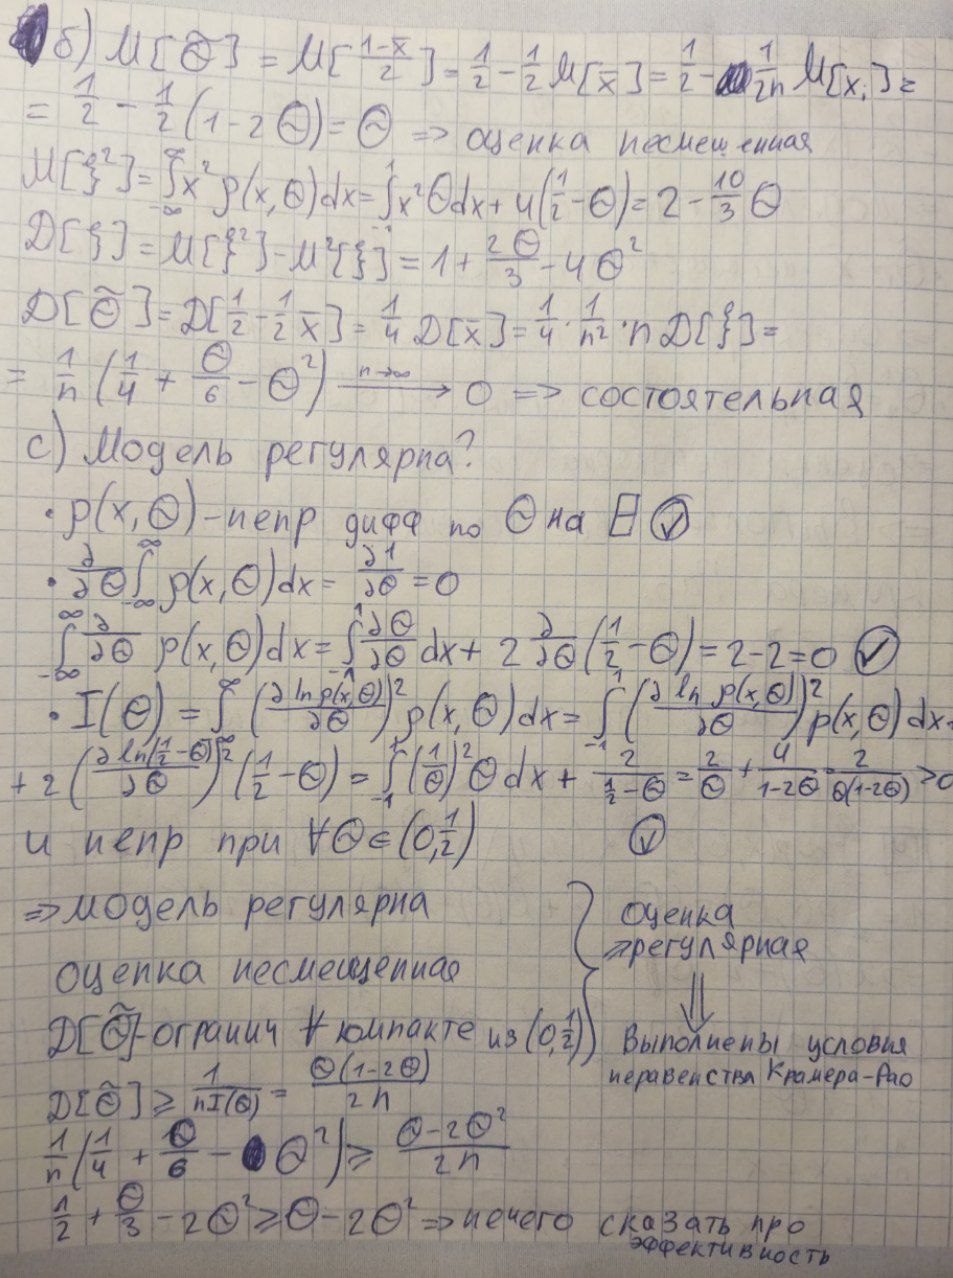 б) M[θ̃] = M[(1-x̄)/2] = 1/2 - 1/2 M[x̄] = 1/2 - 1/2n M[xᵢ] =
= 1/2 - 1/2(1-2θ) = θ => оценка несмещенная
M[ξ²] = ∫_{-∞}^{∞} x² ρ(x,θ)dx = ∫_{-1}^{1} x²θdx + 4(1/2 - θ) = 2 - 10/3 θ
D[ξ] = M[ξ²] - M²[ξ] = 1 + 2θ/3 - 4θ²
D[θ̃] = D[1/2 - 1/2 x̄] = 1/4 D[x̄] = 1/4 · 1/n² · n D[ξ] =
= 1/n (1/4 + θ/6 - θ²) →(n→∞) 0 => состоятельная
c) Модель регулярна?
· ρ(x,θ) - непр дифф по θ на Θ ✓
· ∂/∂θ ∫_{-∞}^{∞} ρ(x,θ)dx = ∂1/∂θ = 0
∫_{-∞}^{∞} ∂/∂θ ρ(x,θ)dx = ∫_{-1}^{1} ∂θ/∂θ dx + 2 ∂/∂θ (1/2 - θ) = 2-2 = 0 ✓
· I(θ) = ∫_{-∞}^{∞} (∂ ln ρ(x,θ)/∂θ)² ρ(x,θ)dx = ∫_{-1}^{1} (∂ ln ρ(x,θ)/∂θ)² ρ(x,θ)dx +
+ 2 (∂ ln(1/2 - θ)/∂θ)² (1/2 - θ) = ∫_{-1}^{1} (1/θ)² θ dx + 2/(1/2 - θ) = 2/θ + 4/(1-2θ) = 2/(θ(1-2θ)) > 0
и непр при ∀θ ∈ (0, 1/2) ✓
=> модель регулярна
оценка несмещенная
D[θ̃] - огранич ∀ компакте из (0, 1/2)
} оценка
=> регулярная
⇓
Выполнены условия
неравенства Крамера-Рао
D[θ̃] ≥ 1/(nI(θ)) = θ(1-2θ)/2n
1/n (1/4 + θ/6 - θ²) ≥ (θ-2θ²)/2n
1/2 + θ/3 - 2θ² ≥ θ - 2θ² => нечего сказать про
эффективность